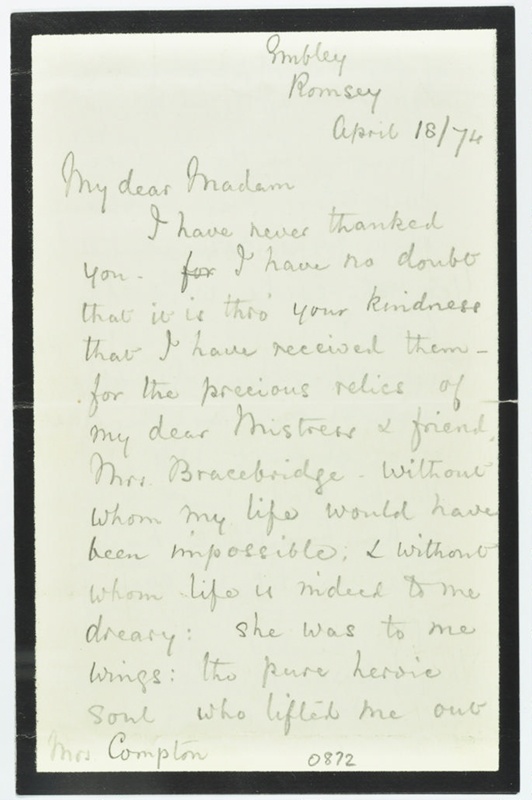 Embley
Romsey
April 18/74
My dear Madam
I have never thanked
you - for I have no doubt
that it is thro' your kindness
that I have received them -
for the precious relics of
my dear Mistress & friend,
Mrs. Bracebridge - without
whom my life would have
been impossible; & without
whom life is indeed to me
dreary: she was to me
wings: the pure heroic
soul who lifted me out
Mrs Compton
0872